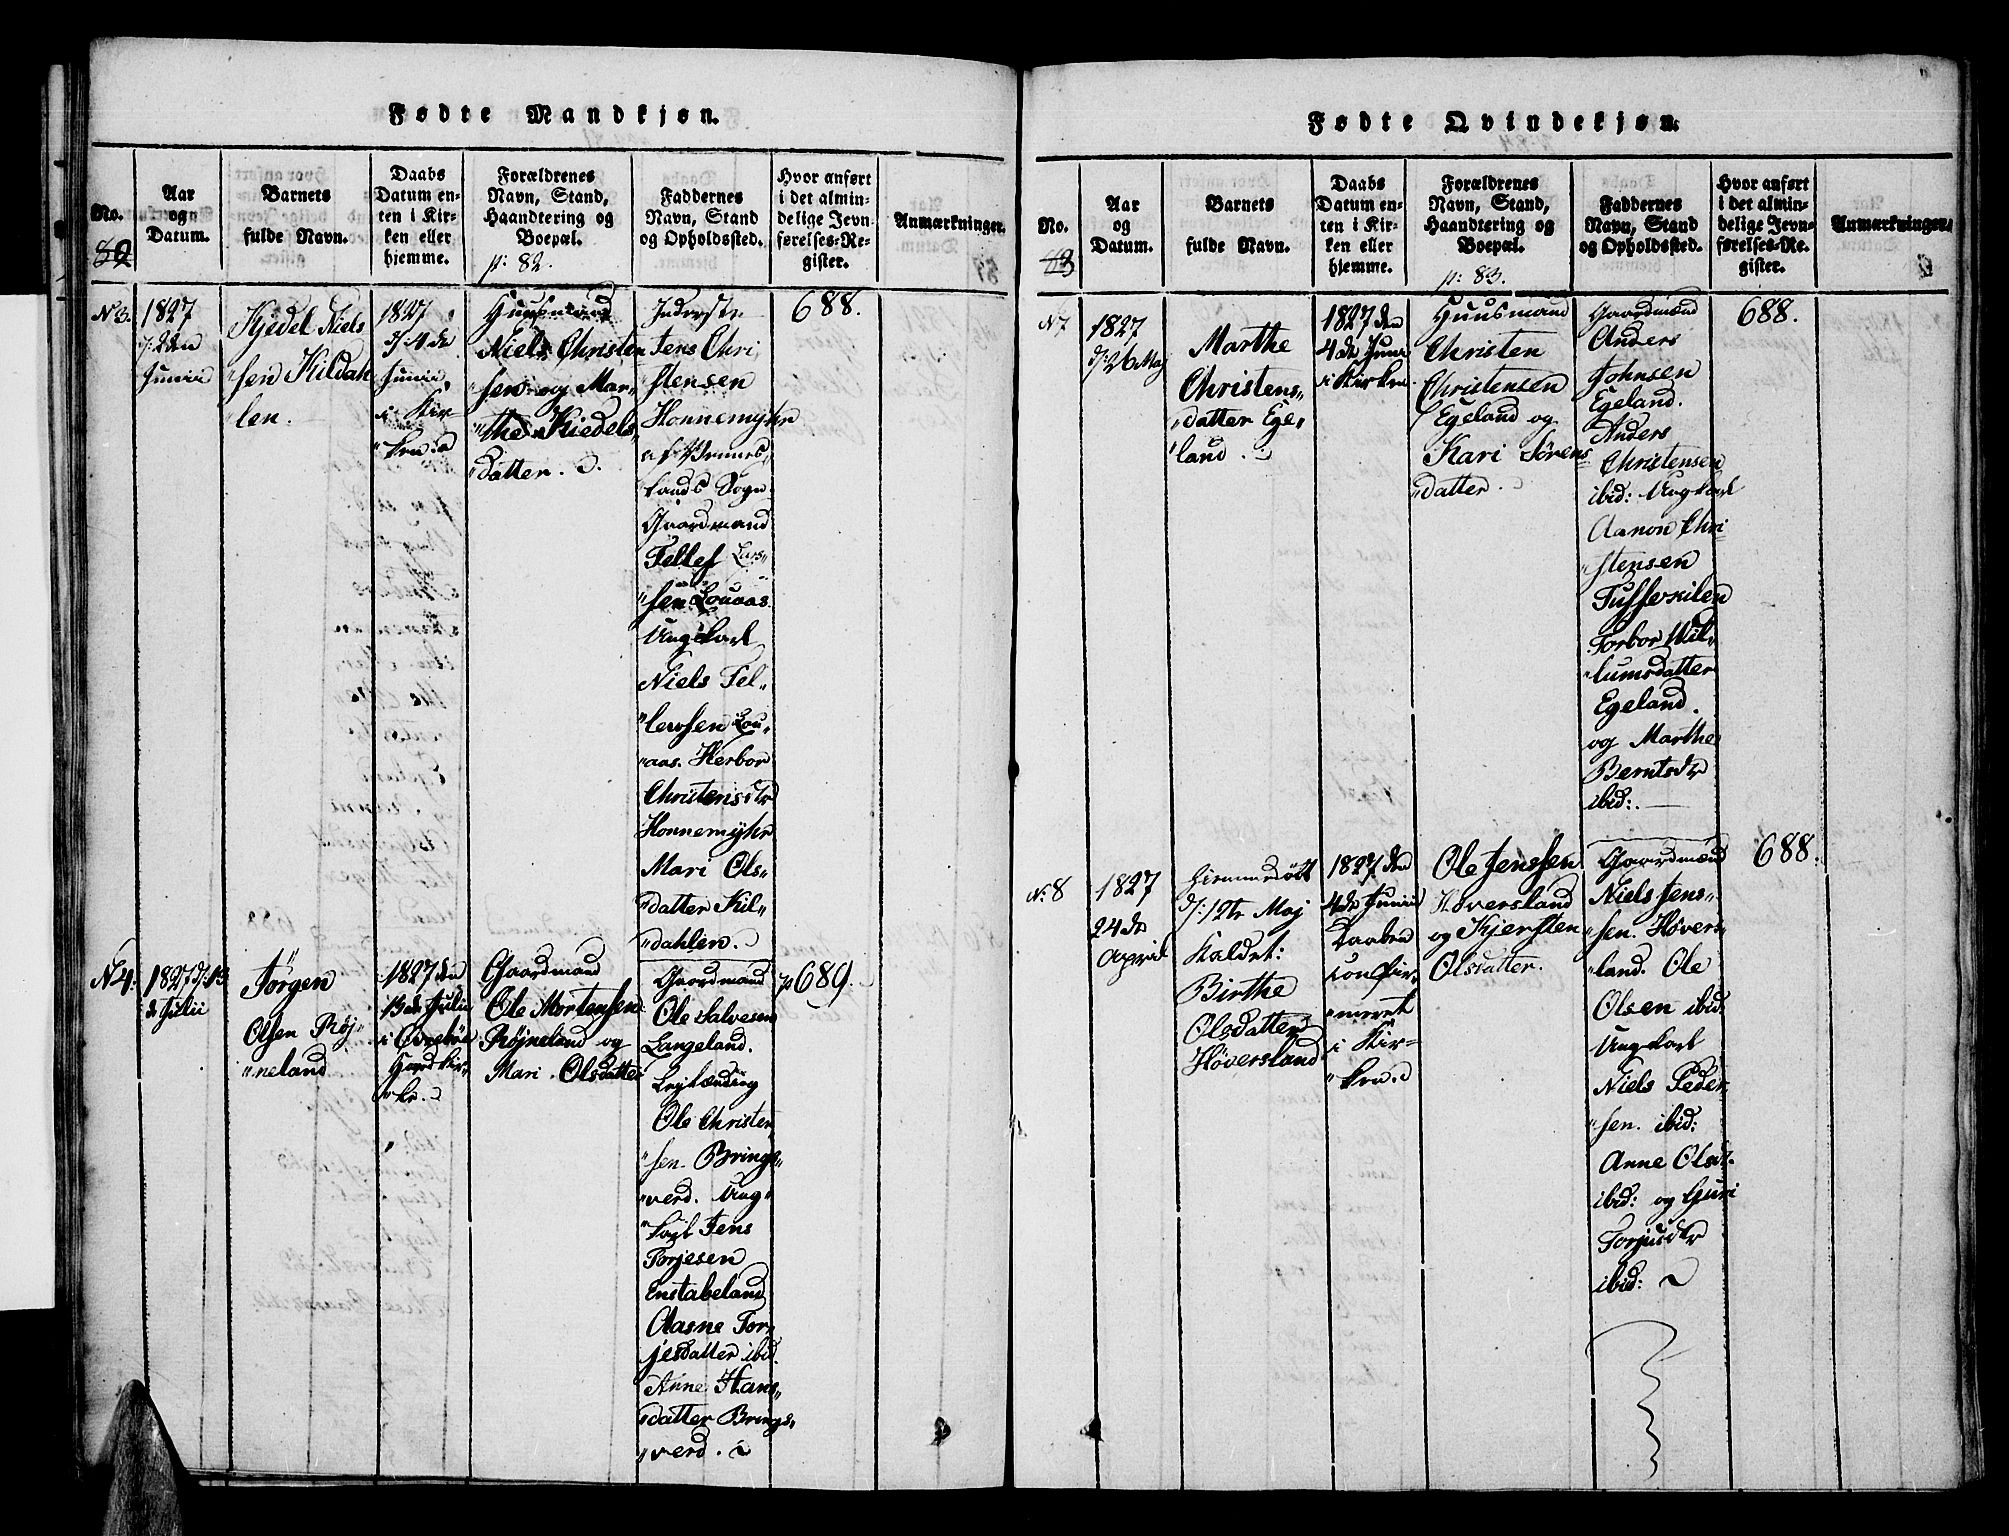 Fødte Mandkjøn.
No.
Aar
og
Datum.
Barnets
fulde Navn.
Daabs
Datum en-
ten i Kir-
ken eller
hjemme.
Forældrenes
Navn, Stand,
Haandtering og
Boepæl.
p: 82.
Faddernes
Navn, Stand
og Opholdssted.
Hvor anført
i det almin-
delige Jevn-
førelses-Re-
gister.
Anmærkninger.
N 3.
1827
d: 2den
Junii
Kjedel Niels
"sen Kildah
"len.
1827
d: 4de
Junii
i Kir
"ken.
Huusmand
Niels Christen
"sen og Mar-
"the Kiedels
"datter.
Inderste
Jens Chri
"stensen
Honnemyhr
af Vennes,
"lands Sogn
Gaardmand
Tellef Lars-
"sen Louaas.
Ungkarl
Niels Tel-
"lewsen Lou-
"aas. Herbor
Christensdtr
Honnemyhr
Mari Ols-
"datter Kil-
"dahlen.
688.
N 4.
1827 d: 13
de Julii
Jörgen
Olsen Röj-
"neland
1827 den
13de Julii
i Øvrebøe
Hovedkir-
"ke.
Gaardmand
Ole Mortensen
Röjneland og
Mari Olsdatter
Gaardmand
Ole Salvesen
Langeland.
Lejlænding
Ole Christen
"sen Brings-
"verd. Ung-
"karl Jens
Torjesen
Enstabeland
Aasne Tor-
jesdatter ibid.
Anne Hans-
"datter Brings-
"verd.
p 689.
Fødte Qvindekjøn.
No.
Aar
og
Datum.
Barnets
fulde Navn.
Daabs
Datum en-
ten i Kir-
ken eller
hjemme.
Forældrenes
Navn, Stand,
Haandtering og
Boepæl.
p: 83.
Faddernes
Navn, Stand
og Opholdssted.
Hvor anført
i det almin-
delige Jevn-
førelses-Re-
gister.
Anmærkninger.
N 7
1827
d: 26 Maj
Marthe
Christens-
"datter Ege-
"land.
1827 den
4de Juni
i Kirken
Huusmand
Christen
Christensen
Egeland og
Kari Sörens
"datter.
Gaardmænd
Anders
Johnsen
Egeland.
Anders
Christensen
ibid: Ungkarl
Aanon Chri
"stensen
Tufserkilen
Torbor Wil-
"lumsdatter
Egeland.
og Marthe
Berntsdtr
ibid:
688.
N: 8
1827
24de
April
Hjemmedöbt
d: 12te Maj
kaldet:
Birthe
Olsdatter
Höversland
1827 den
4de Junii
Daaben
confir-
"meret
i Kir-
"ken.
Ole Jenssen
Höversland
og Kjersten
Olsdatter.
Gaardmænd
Niels Jens-
"sen. Hövers-
"land. Ole
Olsen ibid:
Ungkarl
Niels Peder
"sen. ibid:
Anne Olsdt.
ibid: og Guri
Torjusdtr
ibid:
688.